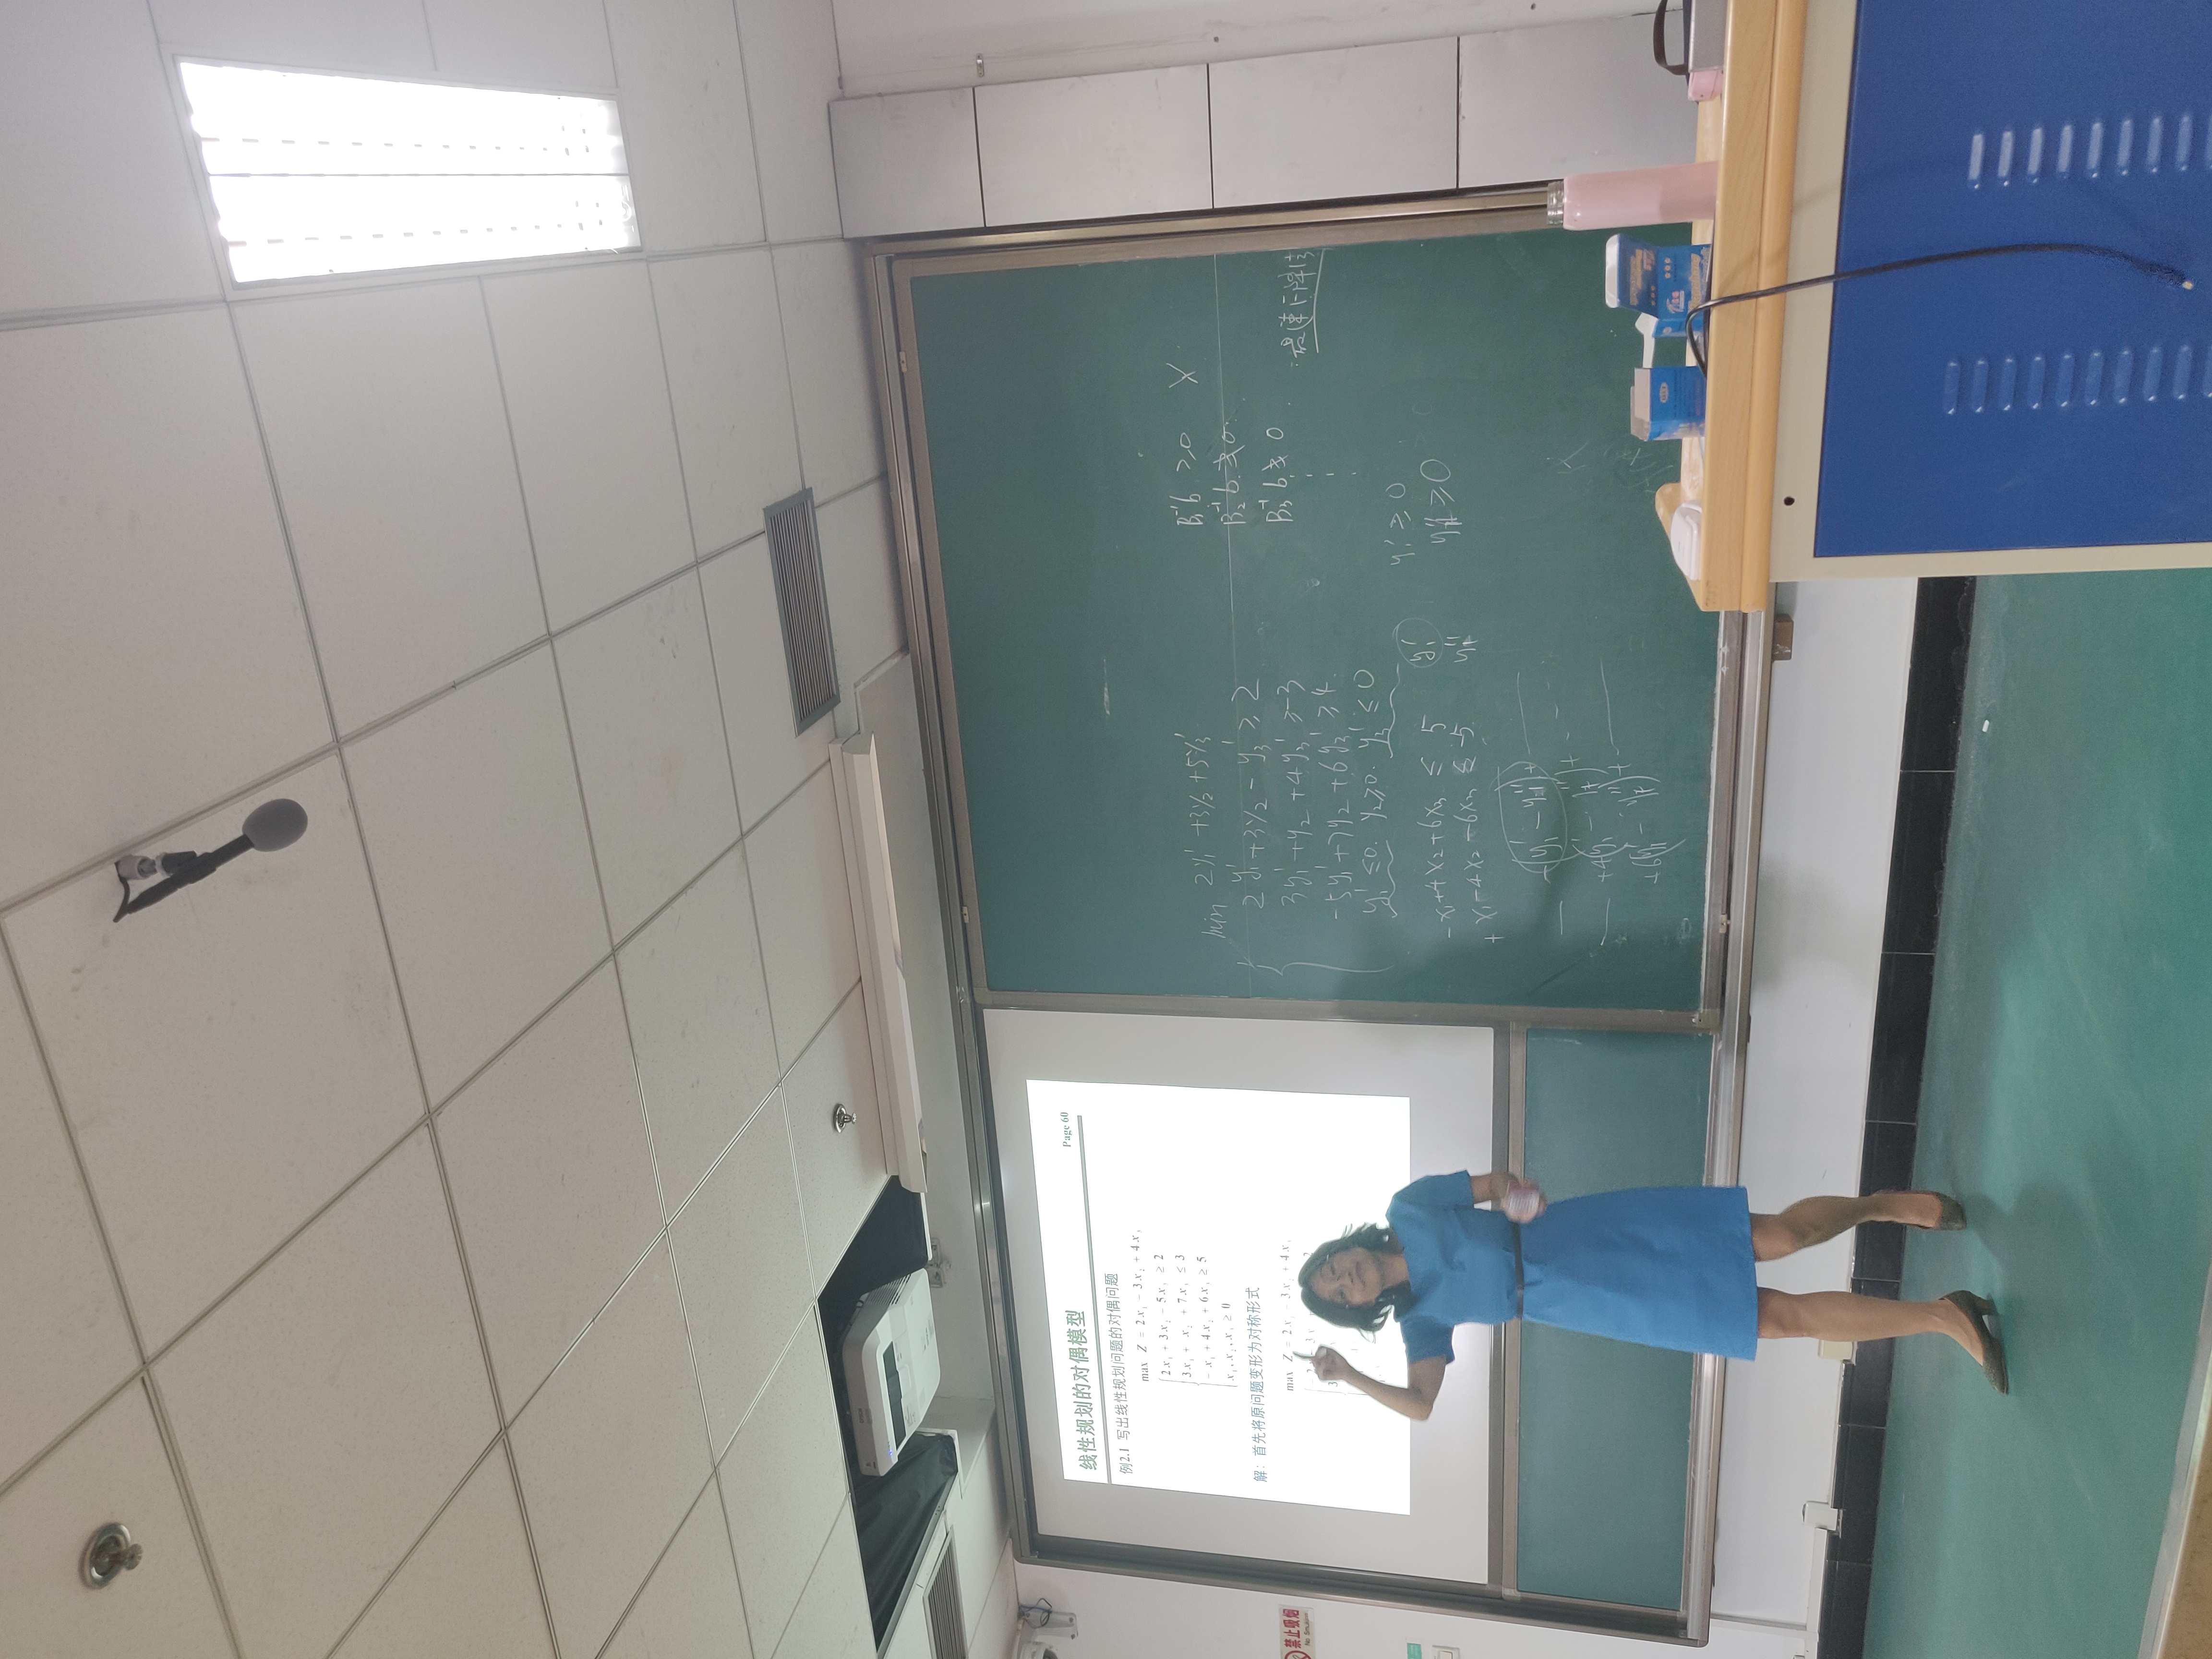 线性规划的对偶模型
Page 60
例2.1 写出线性规划问题的对偶问题
max Z = 2x₁ - 3x₂ + 4x₃
2x₁ + 3x₂ - 5x₃ ≥ 2
3x₁ + x₂ + 7x₃ ≤ 3
- x₁ + 4x₂ + 6x₃ ≥ 5
x₁, x₂, x₃ ≥ 0
解: 首先将原问题变形为对称形式
max Z = 2x₁ - 3x₂ + 4x₃
禁止吸烟
No Smoking
min 2y₁' + 3y₂ + 5y₃'
2y₁' + 3y₂ - y₃' ≥ 2
3y₁' + y₂ + 4y₃' ≥ -3
-5y₁' + 7y₂ + 6y₃' ≥ 4
y₁' ≤ 0. y₂ ≥ 0. y₃' ≤ 0
-x₁ + 4x₂ + 6x₃ ≤ 5 y₁'
+ x₁ - 4x₂ - 6x₃ ≤ -5 y₁''
-(y₁' - y₁'') +
+4(y₁' - y₁'') +
+6(y₁' - y₁'') +
B₁⁻¹b ≥ 0 X
B₂⁻¹b ≱ 0
B₃⁻¹b ≱ 0
最速下降
y₁' ≥ 0
y₁'' ≥ 0